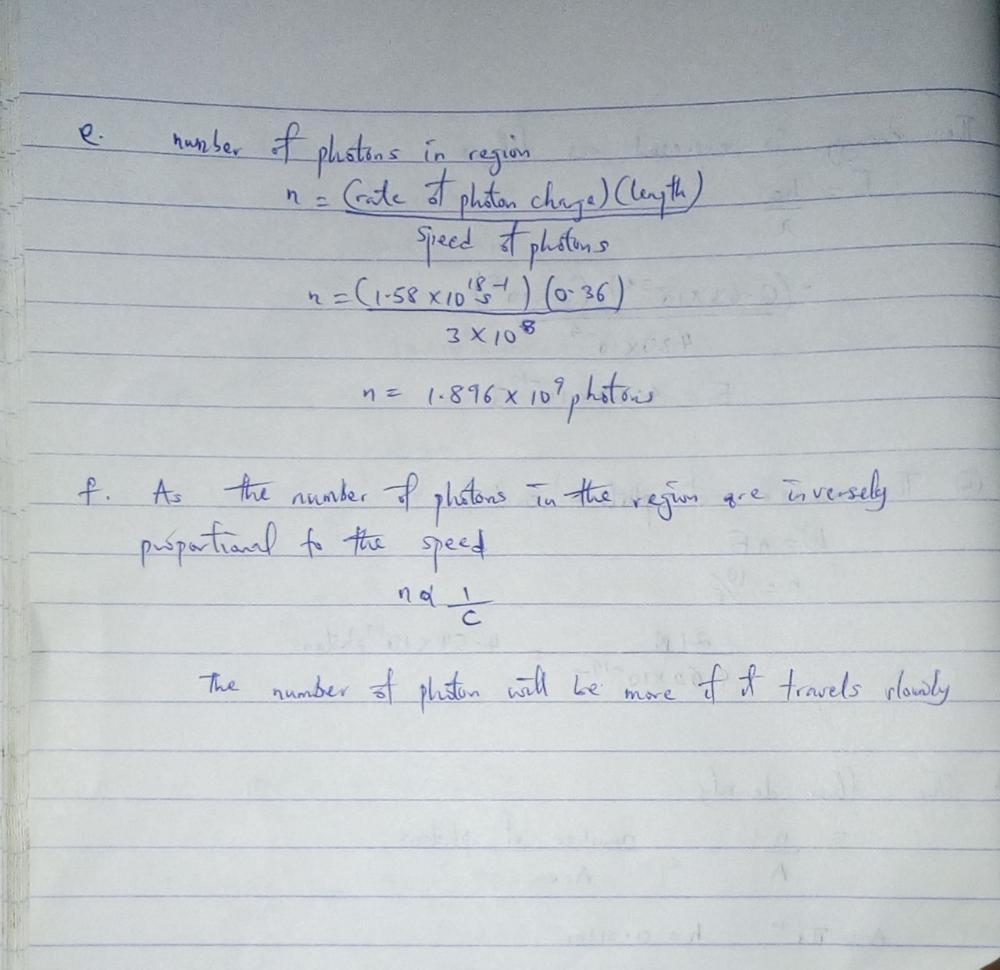 e. number of photons in region
n = (rate of photon change) (length)
speed of photons
n = (1.58 × 10¹⁸ s⁻¹) (0.36)
3 × 10⁸
n = 1.896 × 10⁹ photons
f. As the number of photons in the region are inversely
proportional to the speed
n α 1/C
The number of photon will be more if it travels slowly